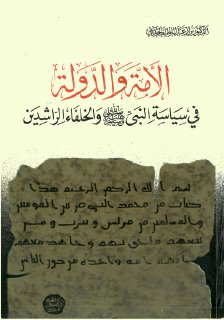 الدكتور
الأمة والدولة
في سياسة النبي ﷺ والخلفاء الراشدين
بسم الله الرحمن الرحيم هذا
كتاب من محمد النبي بين المومنين
والمسلمين من قريش ويثرب ومن
تبعهم فلحق بهم وجاهد معهم
انهم امة واحدة من دون الناس